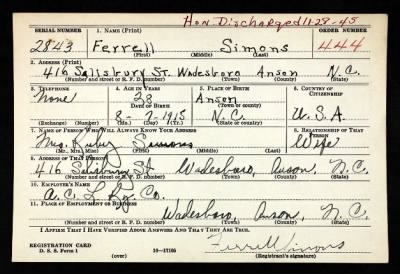 Hon. Discharged 11-28-45
SERIAL NUMBER 1. NAME (Print) ORDER NUMBER
2843 Ferrell Simons 444
(First) (Middle) (Last)
2. ADDRESS (Print)
416 Salisbury St. Wadesboro Anson N.C.
(Number and street or R. F. D. number) (Town) (County) (State)
3. TELEPHONE 4. AGE IN YEARS 5. PLACE OF BIRTH 6. COUNTRY OF CITIZENSHIP
None 28 Anson
DATE OF BIRTH (Town or county)
8- 2-1915 N.C. U.S.A.
(Exchange) (Number) (Mo.) (Day) (Yr.) (State or country)
7. NAME OF PERSON WHO WILL ALWAYS KNOW YOUR ADDRESS 8. RELATIONSHIP OF THAT PERSON
Mrs. Ruby Simons Wife
(Mr., Mrs., Miss) (First) (Middle) (Last)
9. ADDRESS OF THAT PERSON
416 Salisbury St Wadesboro, Anson, N.C.
(Number and street or R. F. D. number) (Town) (County) (State)
10. EMPLOYER'S NAME
A.C.L. Ry. Co.
11. PLACE OF EMPLOYMENT OR BUSINESS
Wadesboro, Anson, N.C.
(Number and street or R. F. D. number) (Town) (County) (State)
I AFFIRM THAT I HAVE VERIFIED ABOVE ANSWERS AND THAT THEY ARE TRUE.
Ferrell Simons
REGISTRATION CARD
D. S. S. Form 1 16-17105
(over) (Registrant's signature)